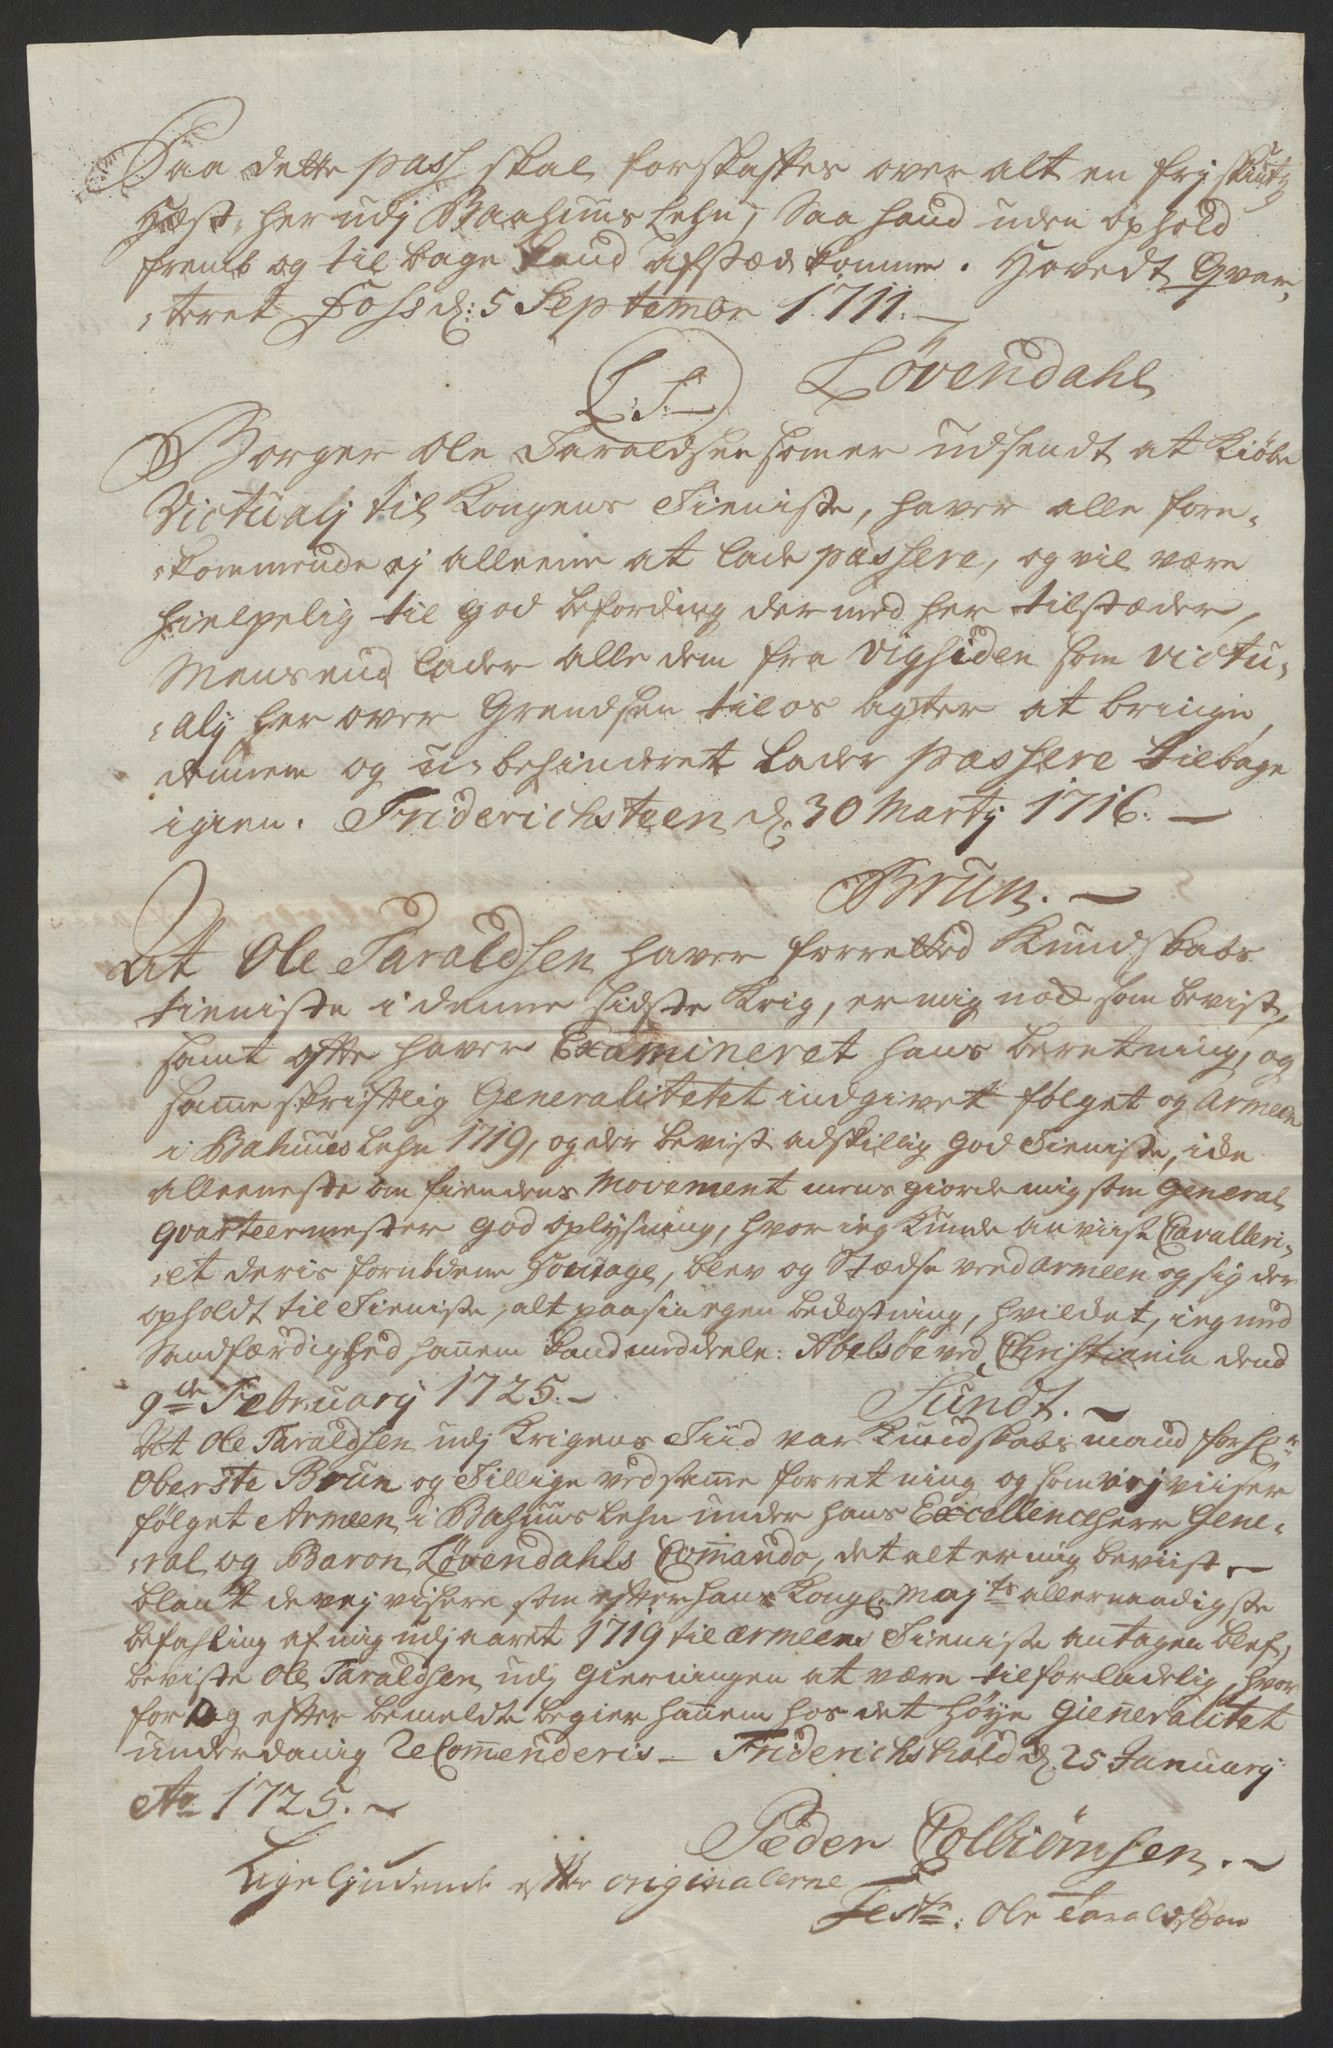 Paa dette pass skal forskaffes over alt en frj skiutz
Hæst, her udj Baahuus Lehn, Saa hand uden ophold
fremb og til bage kand afsted komme. Hovedt Qvar,
,teret Foss d: 5 September 1711.
(L.S.) Løvendahl
Borger Ole Taraldsen som er udsendt at Kiøbe
Victualj til Kongens Tieniste, haver alle fore,
,kommende ej alleene at lade passere, og vil være
hielpelig til god befording der med her tilstæder,
Mens end lader alle dem fra Vigsiden som victu,
,alj her over Grendsen til os agter at bringe,
dennem og u,behindret lader passere tilbage
igien. Friderichsteen d. 30 Martj 1716.
Brun.
At Ole Taraldsen haver forretted Kundskabs
tieniste i denne sidste Krig, er mig nok som bevist,
samt ofte haver Examineret hans beretning, og
samme skriftlig Generalitetet indgivet følget og Armeen
i Bahuus Lehn 1719, og der bevist adskillig god Tieniste, icke
alleeneste om fiendens Movement mens giorde mig som General
Qvarteermester god oplysning, hvor ieg Kunde anviise Cavalleri,
,et deris fornødene fourage, blev og Stædse ved Armeen og sig der
opholdt til Tieniste, alt paa sin egen bekostning, hvilcket, ieg med
Sandfærdighed hannem kand meddeele: Abelsøe ved Christiania dend
9de February 1725.
Sundt.
At Ole Taraldsen udj Krigens Tiid var Kundskabs mand for Hr
Oberste Brun og Tillige ved samme forretning og som vejviiser
følget Armeen i Bahuus Lehn under hans Excellence Herr Gene,
,ral og Baron Løvendahls Commando, det alt er mig beviist
blant de vejvisere som efter hans Kongl. Majts allernaadigste
befahling af mig udj aaret 1719 til armeens Tieniste antagen blef,
beviste Ole Taraldsen udj Gierningen at være tilforladelig, hvor
for Jeg efter bemeldte begier hannem hos det høye Gieneralitet
underdanig ReCommenderis Friderichshald d. 25 January
Ao 1725.
Peder Colbiørnsen.
Lige lydende efter originalerne
Test: Ole Taraldssøn